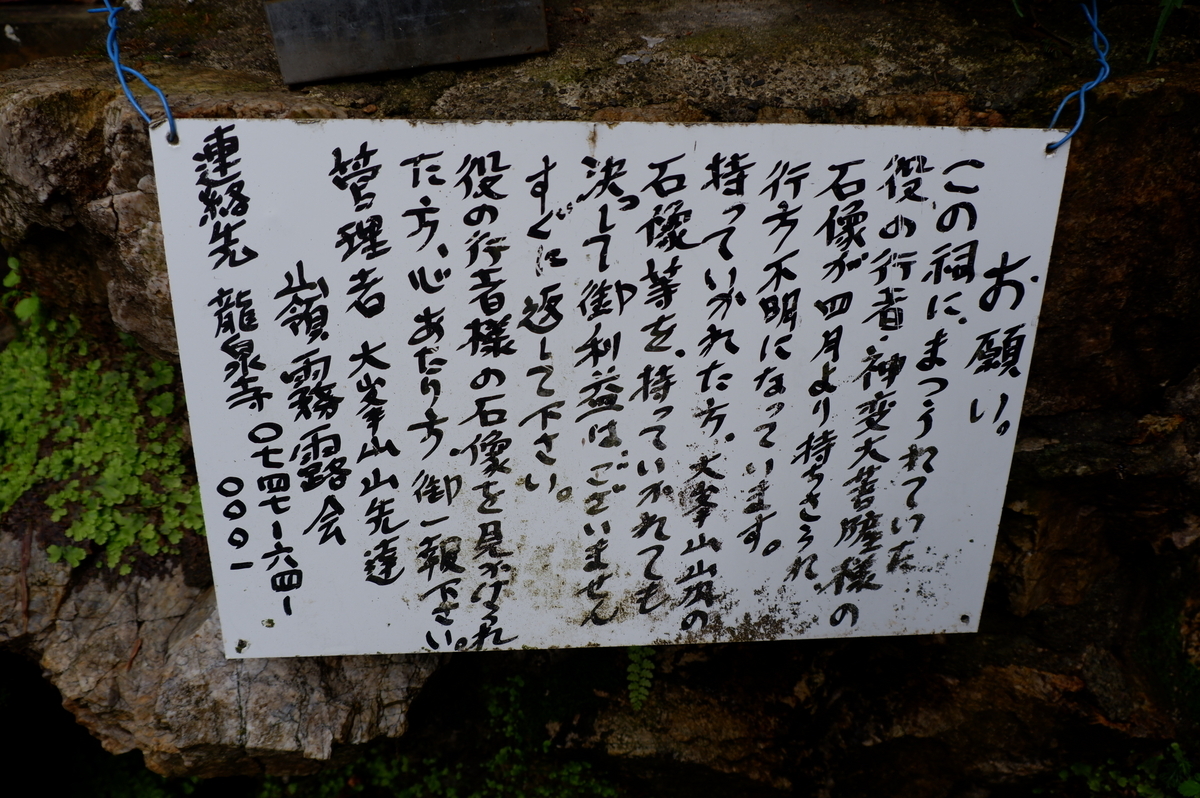 お願い。
この祠に、まつられていた
役の行者・神変大菩薩様の
石像が四月より持ちさられ、
行方不明になっています。
持っていかれた方、大峯山山内の
石像等を、持っていかれても
決っして御利益はございません
すぐに返して下さい。
役の行者様の石像を見かけられ
た方、心あたり方、御一報下さい。
管理者 大峯山山先達
山嶺霧露会
連絡先 龍泉寺 〇七四七ー六四ー
〇〇〇一